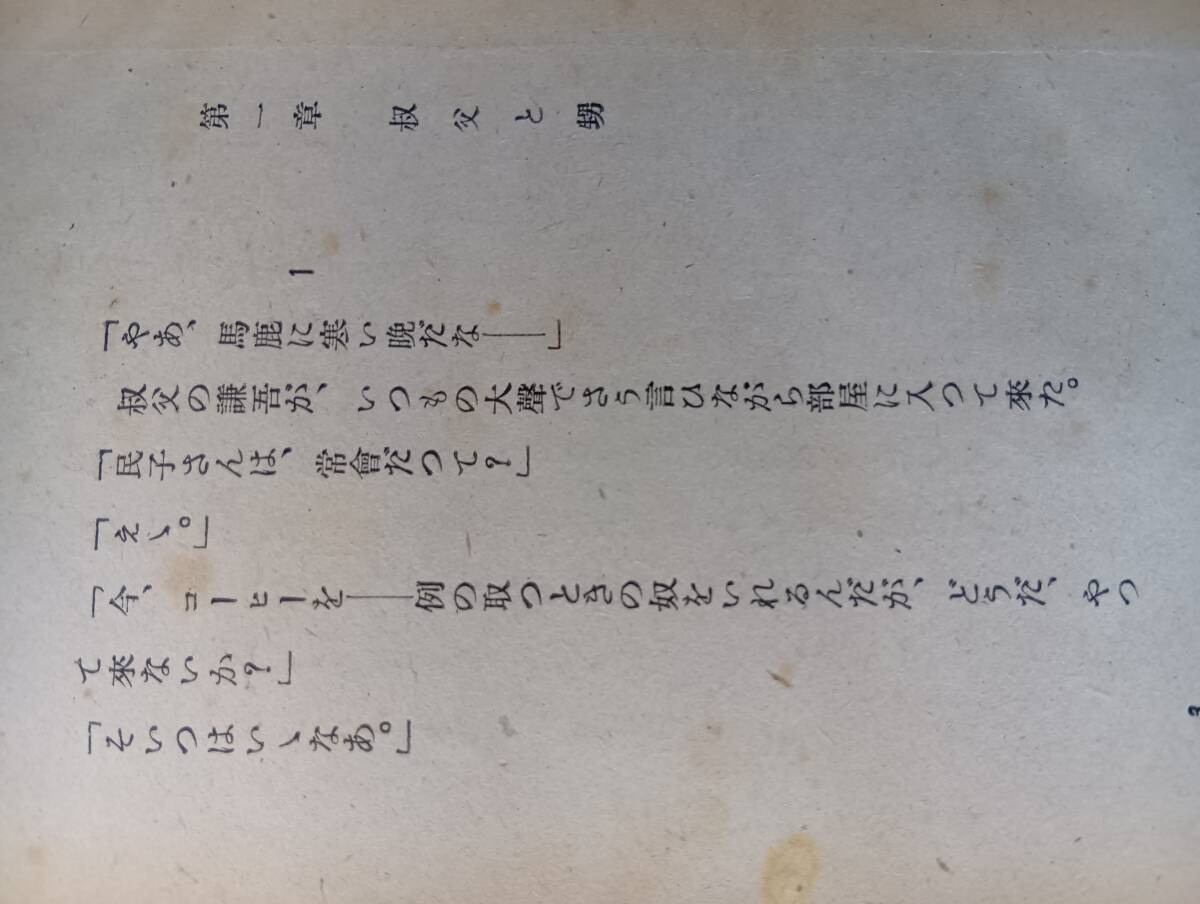 第一章　叔父と甥
1
「やあ、馬鹿に寒い晩だな――」
叔父の謙吾が、いつもの大聲でさう言ひながら部屋に入つて來た。
「民子さんは、常會だつて？」
「えゝ。」
「今、コーヒーを――例の取つときの奴をいれるんだが、どうだ、やつ
て來ないか？」
「そいつはいゝなあ。」
3